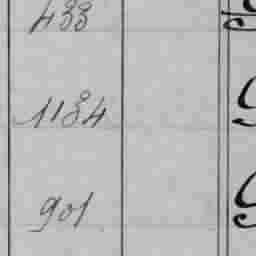 433
1134
901